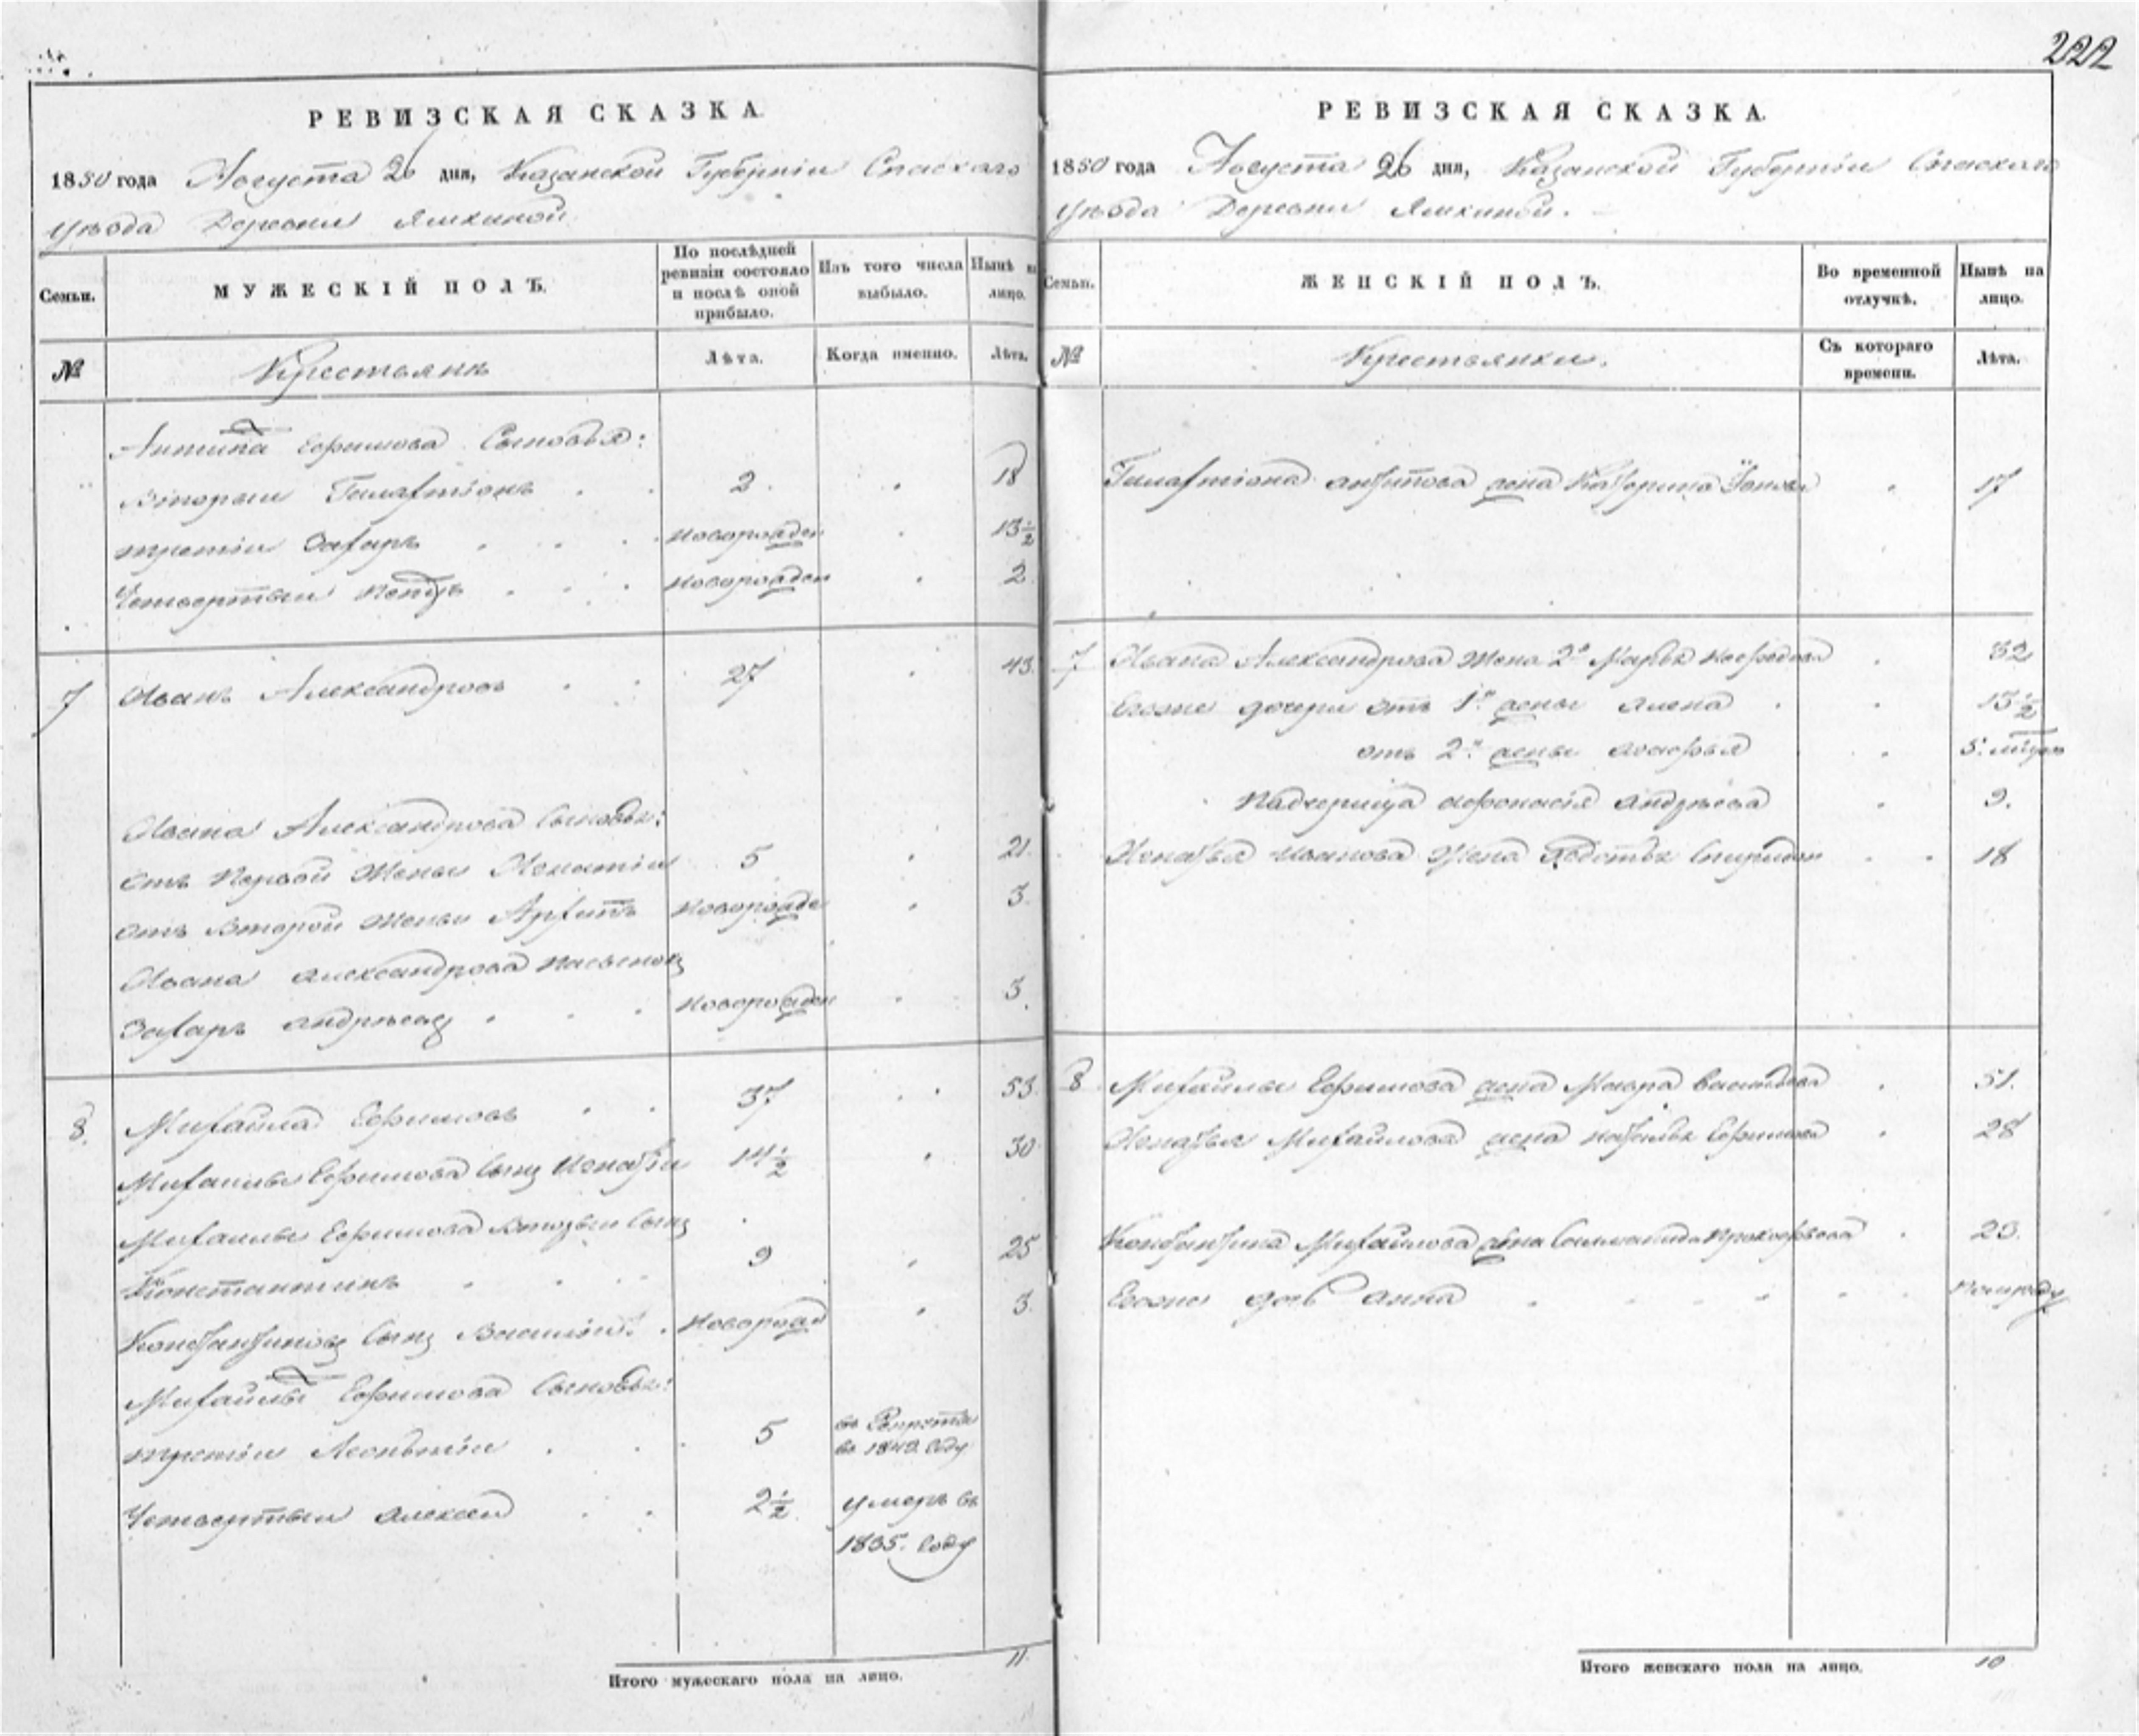 222
РЕВИЗСКАЯ СКАЗКА.
1850 года Августа 26 дня, Казанской Губерніи Спаскаго
уѣзда Деревни Ямкиной
Семьи.
МУЖЕСКІЙ ПОЛЪ.
По послѣдней ревизіи состояло и послѣ оной прибыло.
Изъ того числа выбыло.
Нынѣ на лицо.
№
Крестьянъ
Лѣта.
Когда именно.
Лѣта.
Антипа Ефимова Сыновья:
Вторый 2. 18
третіи Захаръ новорожден 13½
Четвертыи Петръ новорожден 2
7 Иванъ Александровъ 27 43.
Ивана Александрова Сыновьи:
отъ Первой Жены Игнатіи 5 21.
отъ Второй Жены Архипъ новорожде 3.
Ивана Александрова пасынокъ
Захаръ андреевъ новорожден 3.
8. Михаила Ефимовъ 37 53.
Михаилы Ефимова Сынъ Игнатіи 14½ 30
Михаилы Ефимова Вторыи Сынъ
Константинъ 9 25
Константиновъ Сынъ Василіи новорожд 3.
Михаилы Ефимова Сыновьи:
третіи Леонтіи 5 въ Рекруты въ 1849. Году
Четвертыи алексеи 2½ умеръ въ
1835. Году
Итого мужескаго пола на лицо. 11.
РЕВИЗСКАЯ СКАЗКА.
1850 года Августа 26 дня, Казанской Губерніи Спаскаго
уѣзда Деревни Ямкиной.
Семьи.
ЖЕНСКІЙ ПОЛЪ.
Во временной отлучкѣ.
Нынѣ на лицо.
№
Крестьянки.
Съ котораго времени.
Лѣта.
антипова жена Катерина 17
7 Ивана Александрова Жена 2я Марья 32
Егоже дочери отъ 1й жены алена 13½
отъ 2й жены 5. мѣсяц
Падчерица афонасія андрѣева 9.
Игнатья Иванова Жена 18
8 Михайлы Ефимова жена Мавра Васильева 51.
Игнатья Михайлова жена наталья Ефимова 28
Константина Михайлова жена Прокофьева 23.
Егоже дочь анна полгоду
Итого женскаго пола на лицо. 10